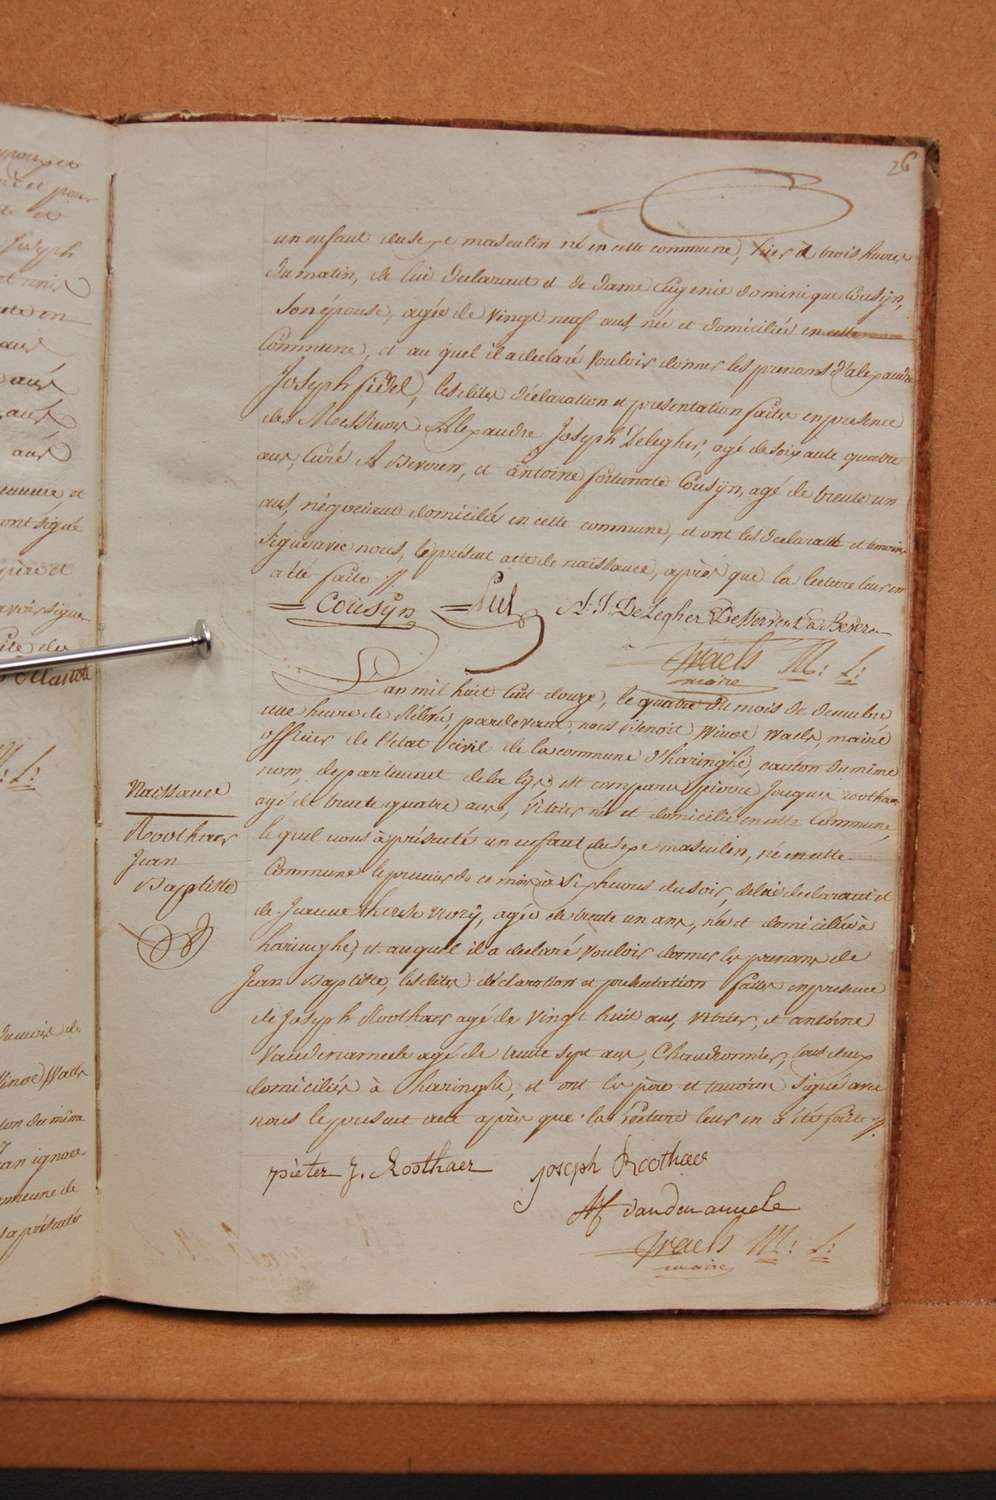 26
un enfant du sexe masculin né en cette commune, hier à trois heures
du matin, de lui déclarant et de dame Eugenie Dominique Cousyn,
son épouse, agée de vingt neuf ans, née et domiciliée en cette
commune, et au quel il a declaré vouloir donner les prenoms d'alexandre
Joseph fidel, lesdites déclaration et presentation faites en presence
des Messieurs Alexandre Joseph Delegher, agé de soixante quatre
ans, curé A Beveren, et antoine fortunate Cousyn, agé de trente un
ans, négociant domiciliés en cette commune, et ont les declarant et temoins
signé avec nous, le présent acte de naissance, après que la lecture leur en
a été faite //
Cousÿn A: J. DeLegher à Bevere
Waels M: L:
maire
L'an mil huit cent douze, le quatre du mois de decembre
une heure de par devant nous Benoit Winoc Waels, maire
officier de l'état civil de la commune d'haringhe, canton du même
nom, departement de la lys, est comparu pierre Jacques roothaer
agé de trente quatre ans, né et domicilié en cette commune,
lequel nous à présenté un enfant de sexe masculin, né en cette
commune le premier de ce mois à sept heures du soir, de lui declarant et
de Jeanne therese agée de trente un ans, née et domiciliée à
haringhe, et au quel il a declaré vouloir donner les prenoms de
Jean Baptiste, lesdites déclaration et presentation faites en presence
de Joseph Roothaer agé de vingt huit ans, et antoine
Vandenameele agé de trente sept ans, Chaudronnier, tous deux
domiciliés à haringhe, et ont les père et temoins signé avec
nous le présent acte après que la lecture leur en a été faite //.
Naissance
Roothaer
Jean
Baptiste
pieter J. Roothaer Joseph Roothaer
vanden ameele
Waels M: L:
maire